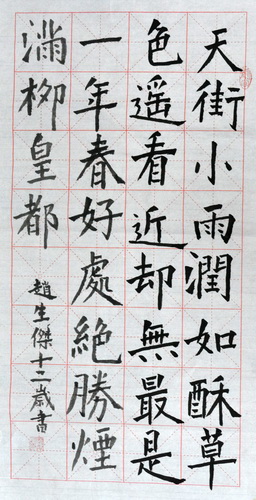 天街小雨潤如酥草
色遥看近却無最是
一年春好處絕勝煙
滿柳皇都
趙生傑十二歲書